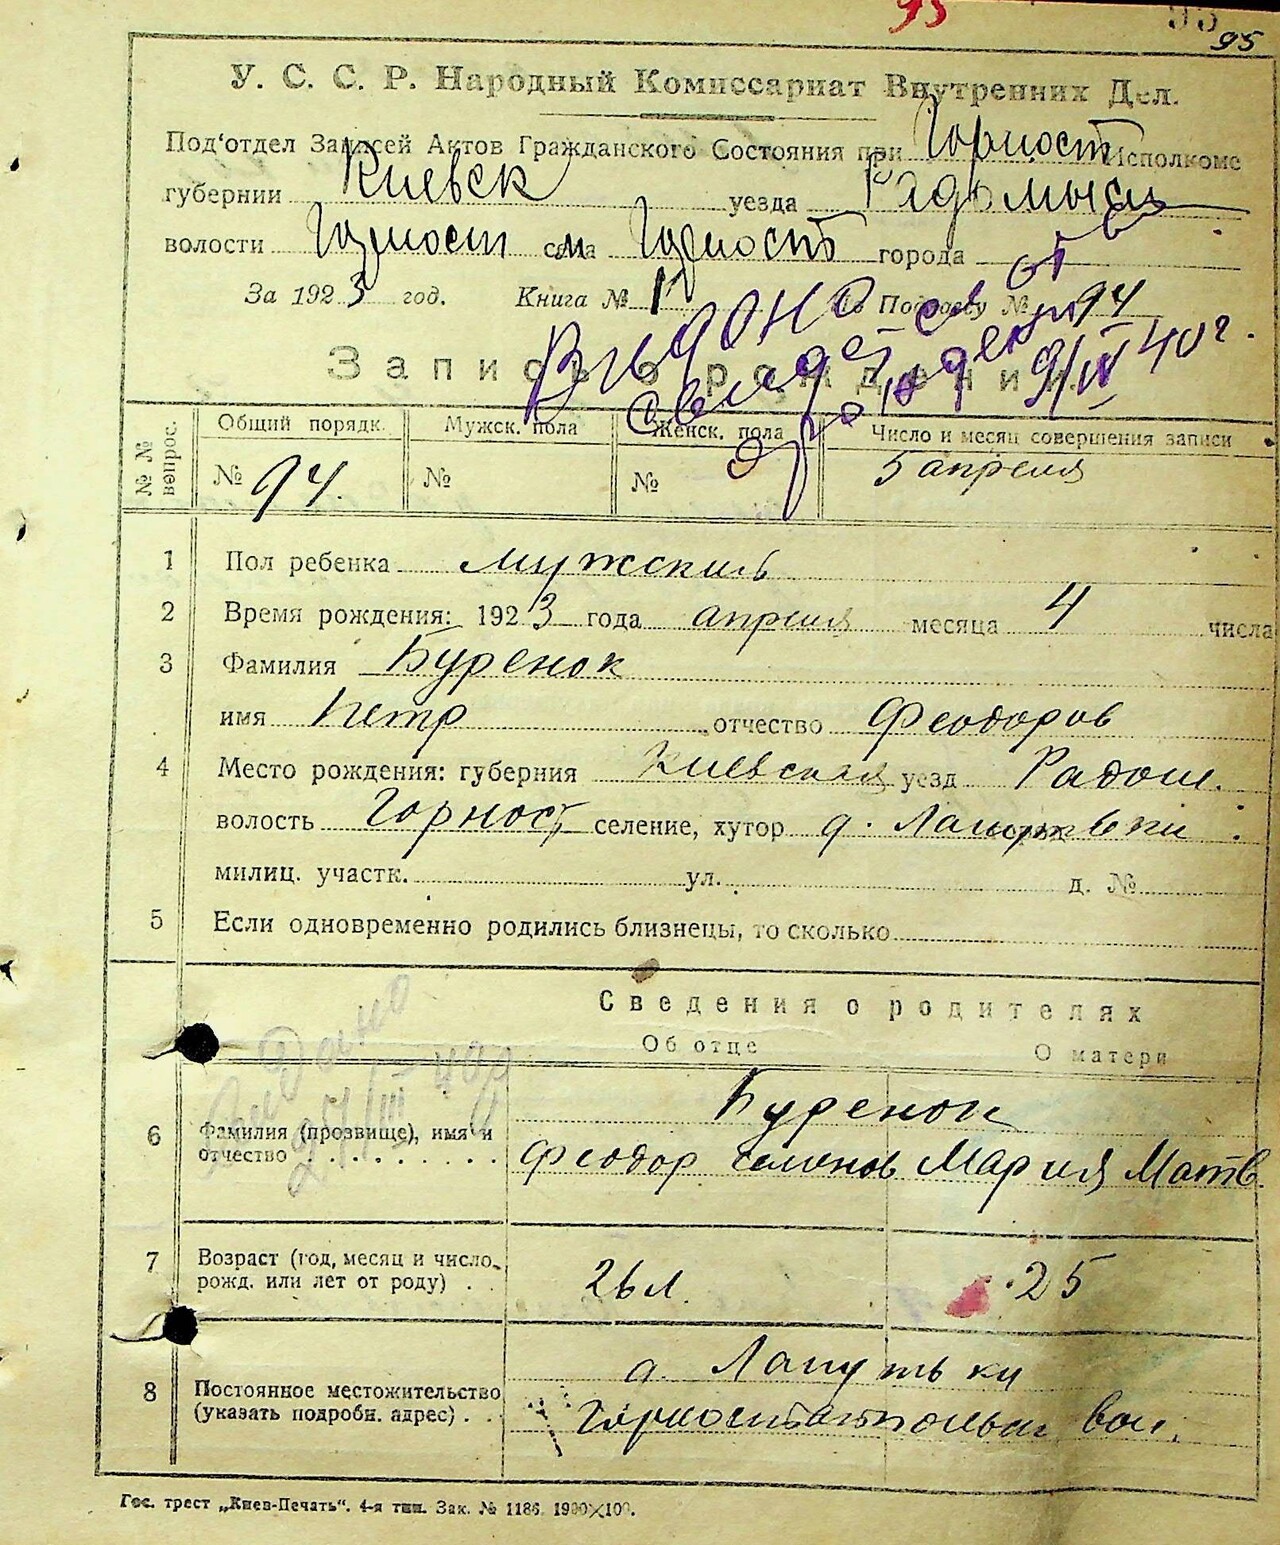 95
93 95
У. С. С. Р. Народный Комиссариат Внутренних Дел.
Под'отдел Записей Актов Гражданского Состояния при Горност Исполкоме
губернии Киевск уезда Радомысл
волости Горност села Горност города
За 1923 год. Книга № 1 По Подотделу № 94
Запись о рождении.
Выдано свидет о рожден
9/IV 40 г.
№№ вопрос. Общий порядк. Мужск. пола Женск. пола Число и месяц совершения записи
№ 94. № № 5 апреля
1 Пол ребенка мужский
2 Время рождения: 1923 года апреля месяца 4 числа
3 Фамилия Буренок
имя Петр отчество Феодоров
4 Место рождения: губерния Киевская уезд Радом.
волость Горност селение, хутор д. Лапутьки
милиц. участк. ул. д. №
5 Если одновременно родились близнецы, то сколько
Сведения о родителях
Об отце О матери
Выдано
/III 40 г
Буренок
6 Фамилия (прозвище), имя и
отчество Феодор Семенов Мария Матв.
7 Возраст (год, месяц и число
рожд. или лет от роду) 26 л. 25
д. Лапутьки
8 Постоянное местожительство
(указать подробн. адрес) Горностайпольск вол.
Гос. трест „Киев-Печать". 4-я тип. Зак. № 1186. 1900×100.